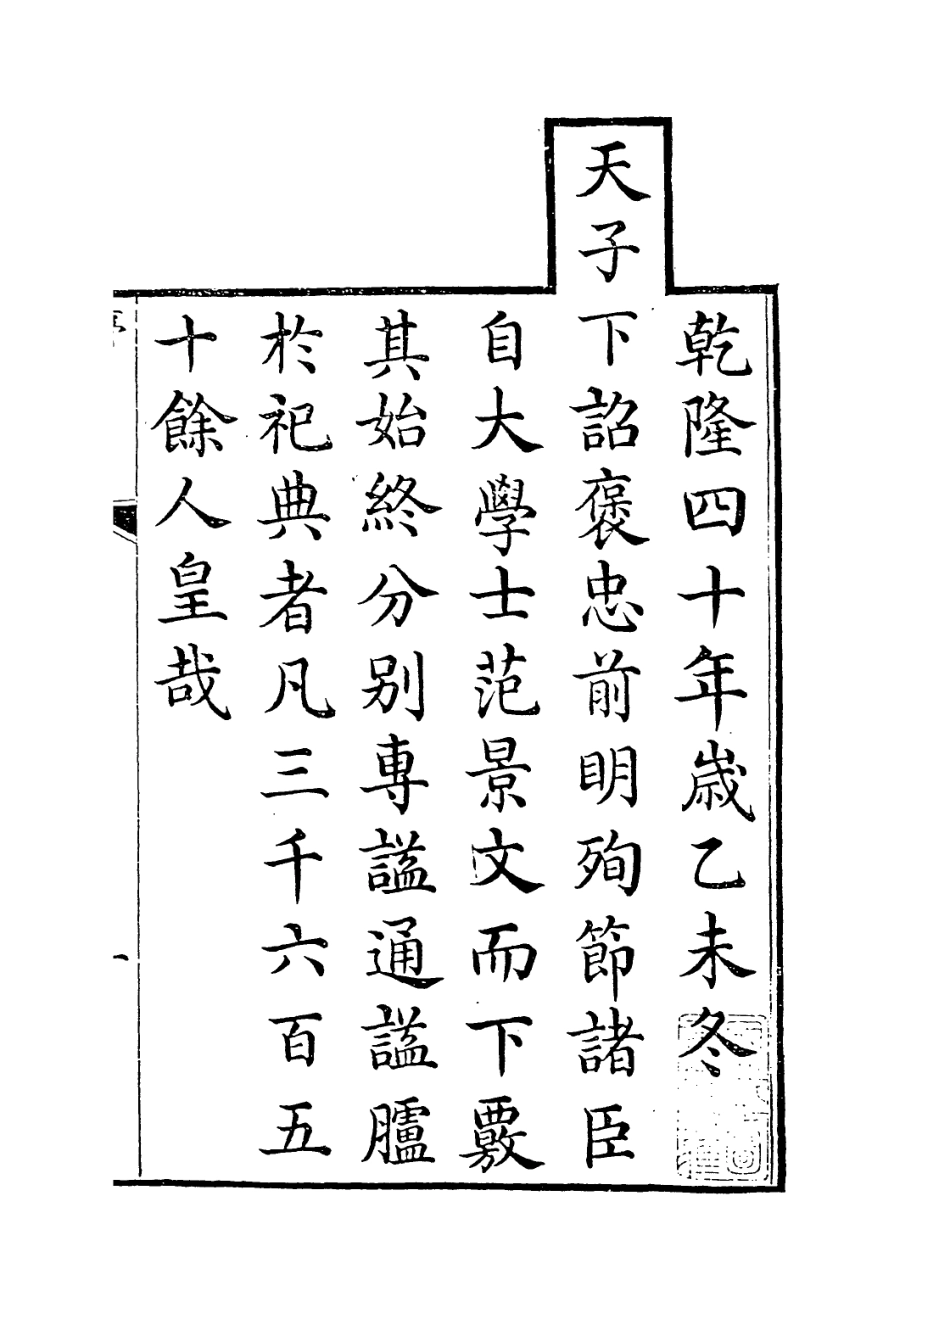 乾隆四十年歳乙未冬
天子下詔褒忠前明殉節諸臣
自大學士范景文而下覈
其始終分别專謚通謚臚
於祀典者凡三千六百五
十餘人皇哉